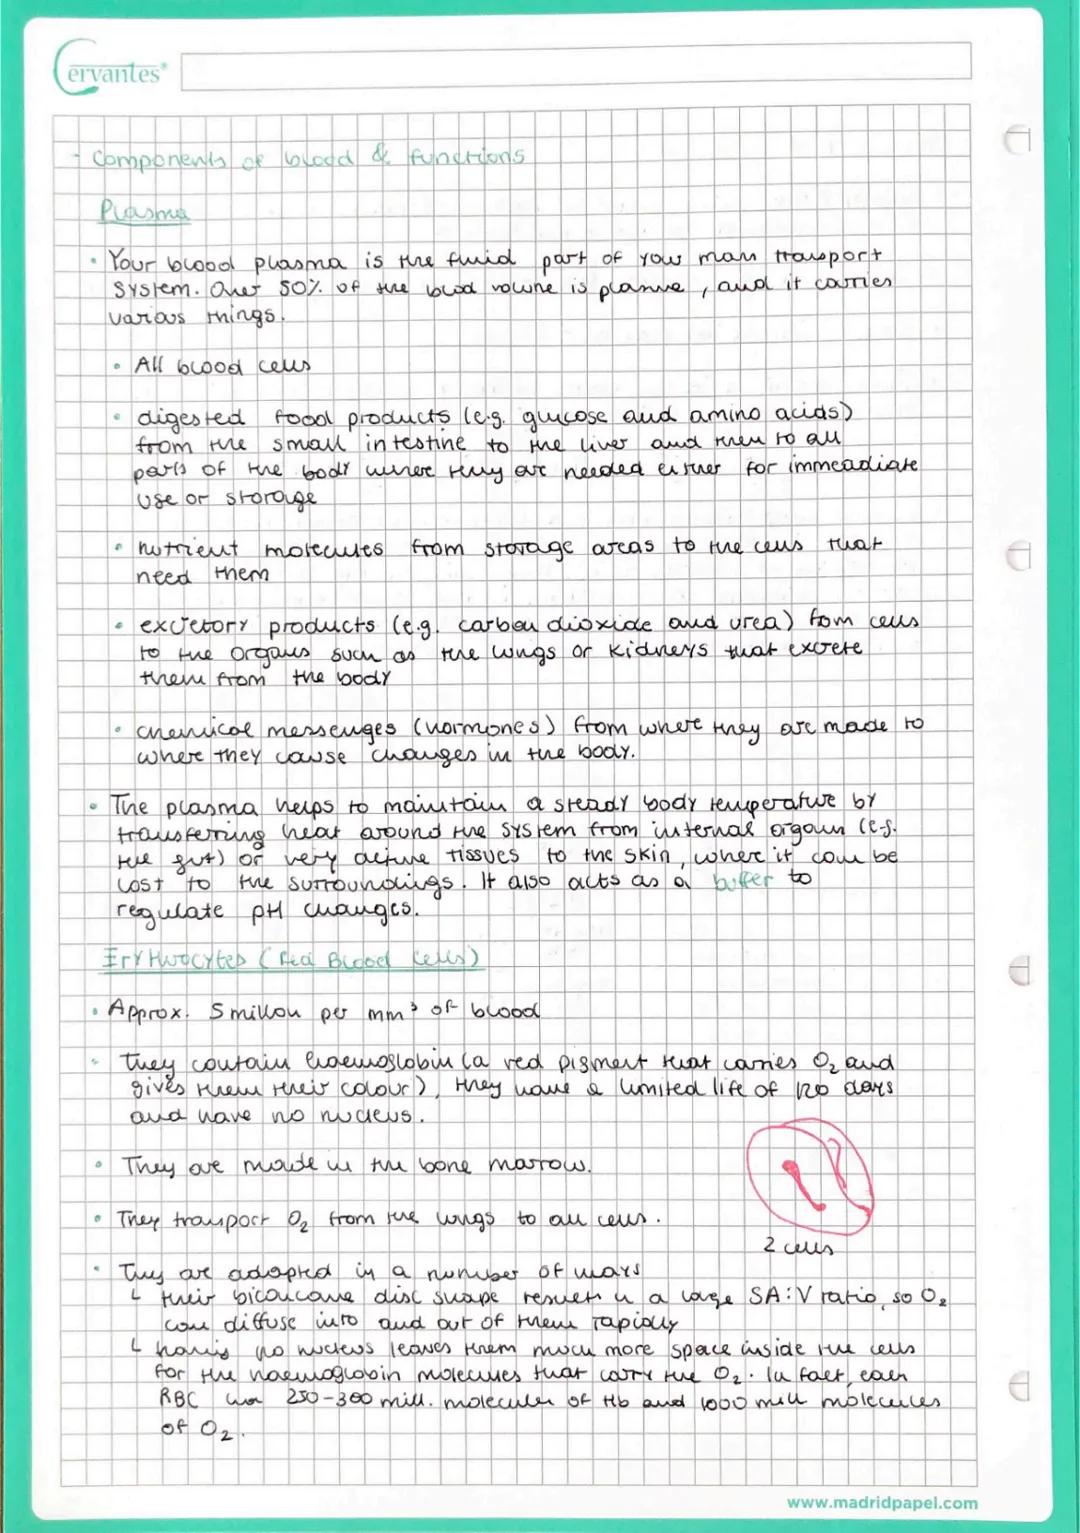 Cervantes®
- Components of blood & functions
Plasma
• Your blood plasma is the fluid part of your main transport
system. Over 50% of the blood volume is plasma, and it carries
various things.
• All blood cells
• digested food products (e.g. glucose and amino acids)
from the small intestine to the liver and then to all
parts of the body where they are needed either for immeadiate
use or storage
• nutrient molecules from storage areas to the cells that
need them
• excretory products (e.g. carbon dioxide and urea) from cells
to the organs such as the lungs or kidneys that excrete
them from the body
• chemical messenges (hormones) from where they are made to
where they cause changes in the body.
• The plasma helps to maintain a steady body temperature by
transferring heat around the system from internal organ (e.g.
the gut) or very active tissues to the skin, where it can be
lost to the surroundings. It also acts as a buffer to
regulate pH changes.
Erythrocytes (Red Blood Cells)
• Approx. 5 millon per mm³ of blood
• They contain haemoglobin (a red pigment that carries O₂ and
gives them their colour), they have a limited life of 120 days
and have no nucleus.
• They are made in the bone marrow.
• They transport O₂ from the lungs to all cells.
2 cells
• They are adapted in a number of ways
↳ their biconcave disc shape results in a large SA:V ratio, so O₂
can diffuse into and out of them rapidly
↳ having no nucleus leaves them much more space inside the cells
for the haemoglobin molecules that carry the O₂. In fact, each
RBC has 250-300 mill. molecules of Hb and 1000 mill molecules
of O₂.
www.madridpapel.com